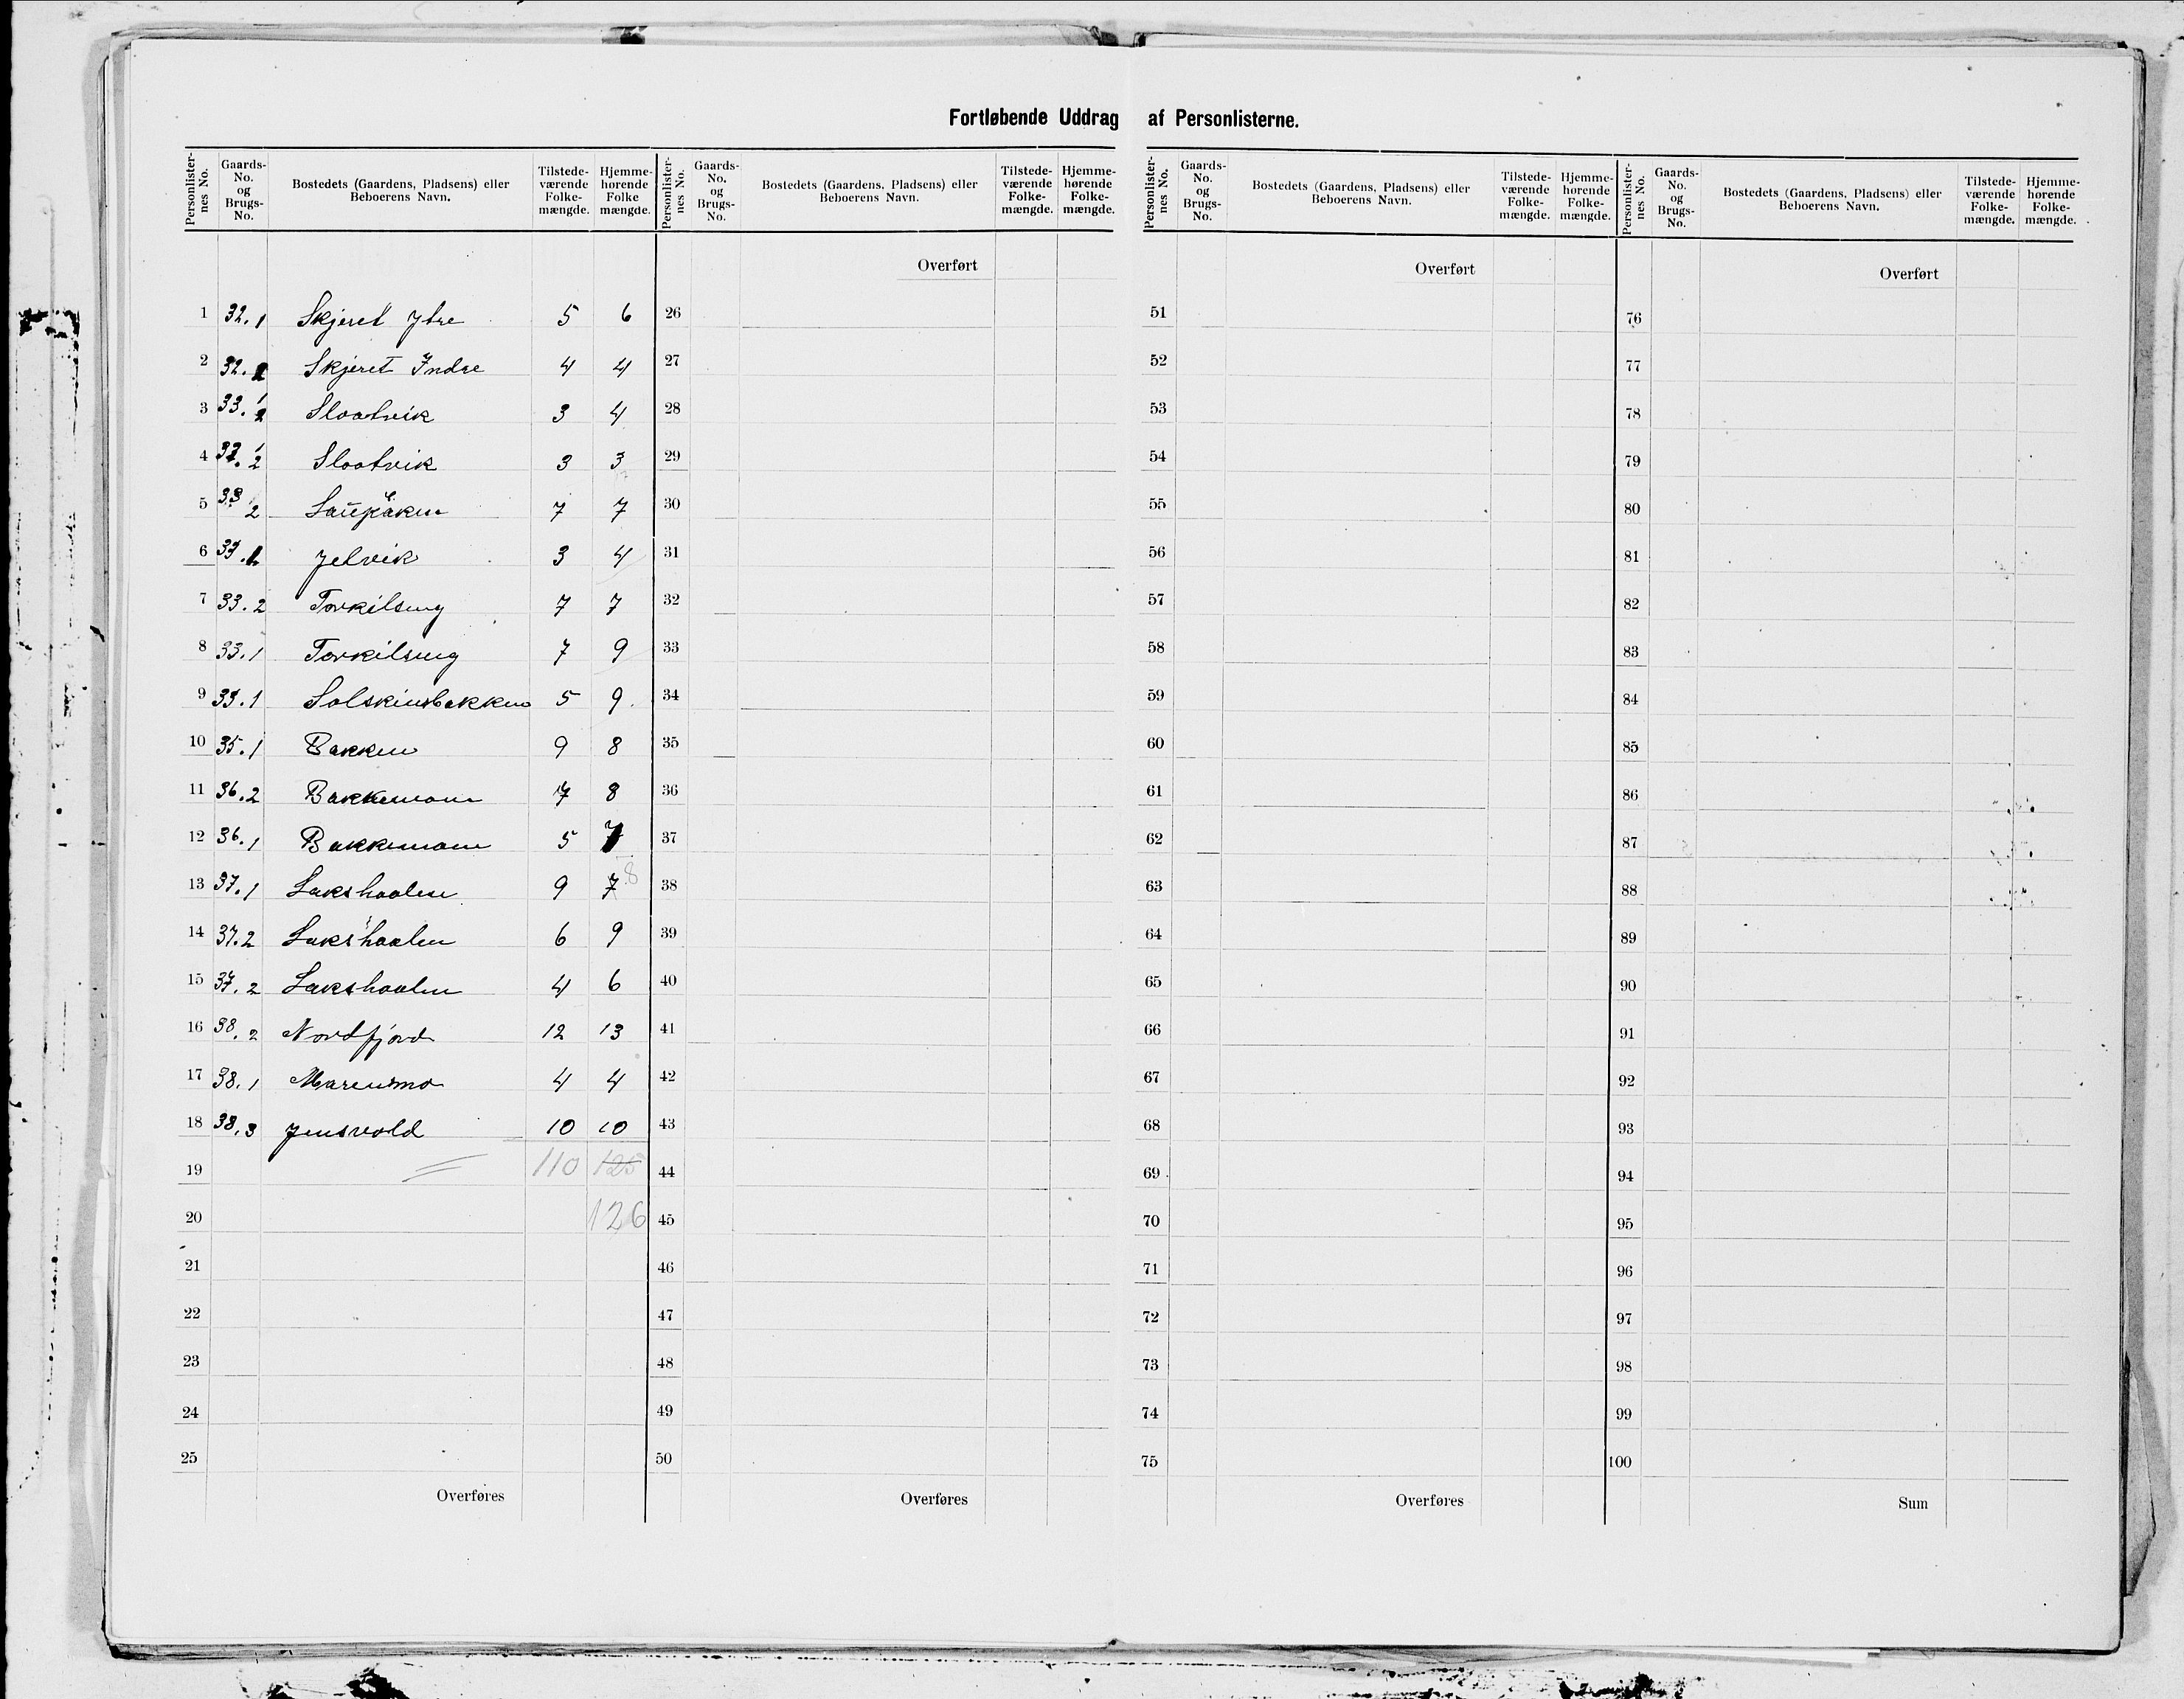 Fortløbende Uddrag af Personlisterne.
Personlisternes No. | Gaards-No. og Brugs-No. | Bostedets (Gaardens, Pladsens) eller Beboerens Navn. | Tilstedeværende Folkemængde. | Hjemmehørende Folke mængde. | Personlisternes No. | Gaards-No. og Brugs-No. | Bostedets (Gaardens, Pladsens) eller Beboerens Navn. | Tilstedeværende Folkemængde. | Hjemmehørende Folkemængde. | Personlisternes No. | Gaards-No. og Brugs-No. | Bostedets (Gaardens, Pladsens) eller Beboerens Navn. | Tilstedeværende Folkemængde. | Hjemmehørende Folkemængde. | Personlisternes No. | Gaards-No. og Brugs-No. | Bostedets (Gaardens, Pladsens) eller Beboerens Navn. | Tilstedeværende Folkemængde. | Hjemmehørende Folkemængde.
Overført Overført Overført
1 32.1 Skjeret Ytre 5 6 26 51 76
2 32.2 Skjeret Indre 4 4 27 52 77
3 33. Slaatvik 3 4 28 53 78
4 Slaatvik 3 3 29 54 79
5 33 2 7 7 30 55 80
6 33. Jelvik 3 4 31 56 81
7 33.2 Torkilseng 7 7 32 57 82
8 33.1 Torkilseng 7 9 33 58 83
9 33.1 Solskinsbakken 5 9 34 59 84
10 35.1 Bakken 9 8 35 60 85
11 36.2 Bakkemoen 7 8 36 61 86
12 36.1 Bakkemoen 5 7 37 62 87
13 37.1 Lakshaalen 9 7 8 38 63 88
14 37.2 Lakshaalen 6 9 39 64 89
15 37.2 Lakshaalen 4 6 40 65 90
16 38.2 Nordfjord 12 13 41 66 91
17 38.1 Marensmo 4 4 42 67 92
18 38.3 Jensvold 10 10 43 68 93
19 110 125 44 69 94
20 126 45 70 95
21 46 71 96
22 47 72 97
23 48 73 98
24 49 74 99
25 50 75 100
Overføres Overføres Overføres Sum